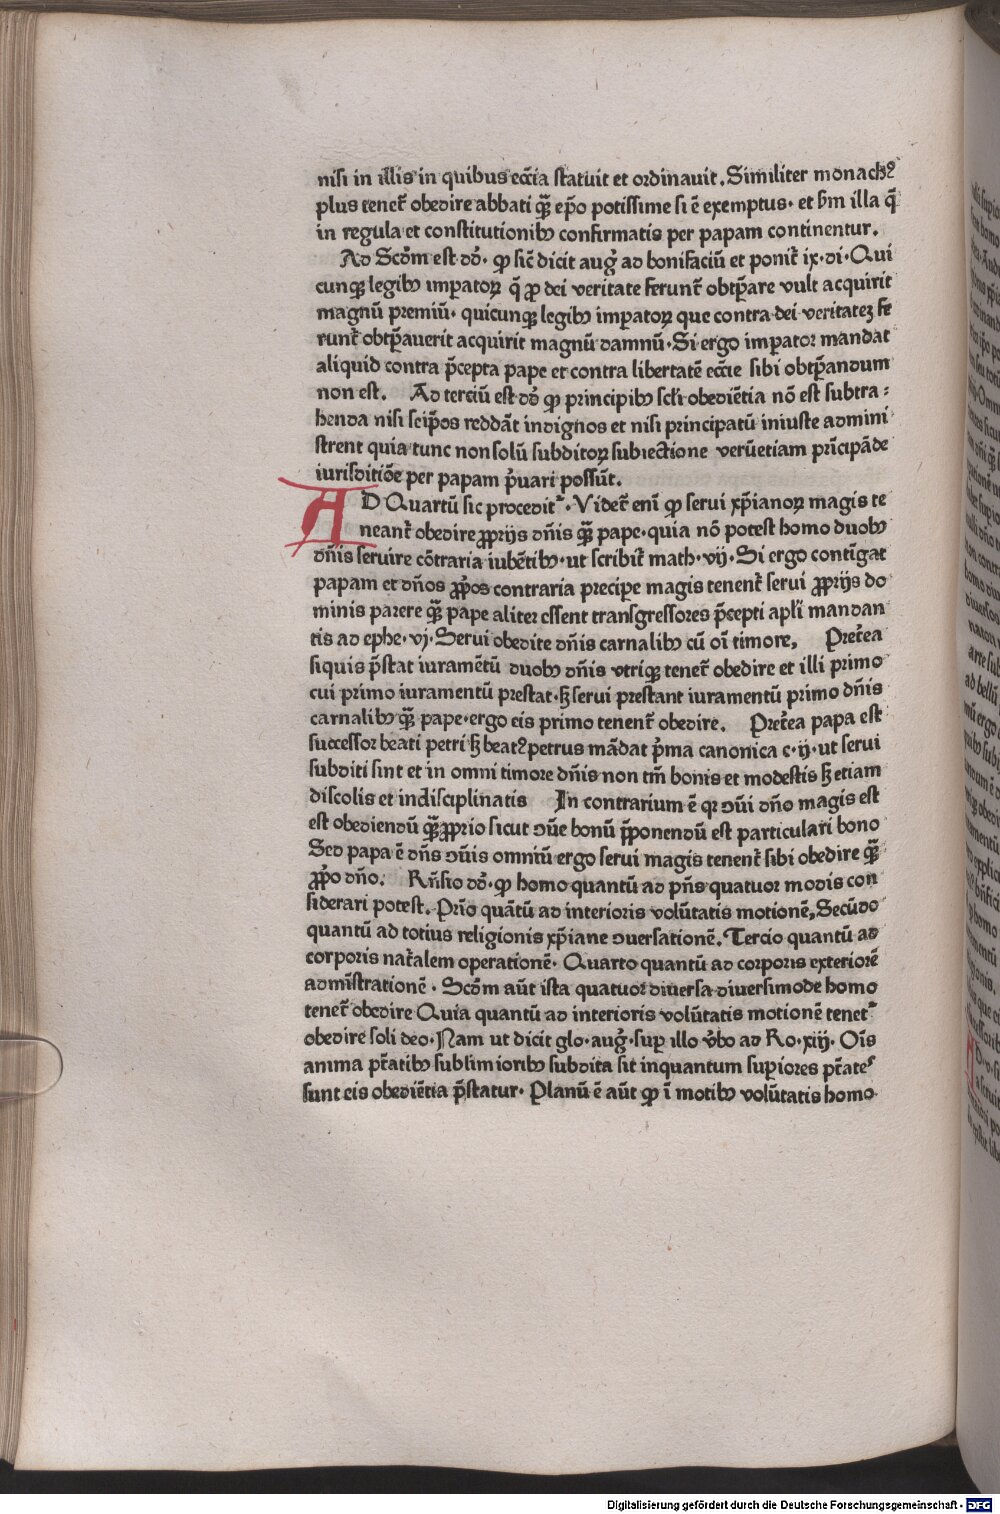 nisi in illis in quibus ecc̄ia statuit et ordinauit. Similiter monachꝰ
plus tenet᷑ obedire abbati qꝫ̄ ep̄o potissime si ē exemptus· et ẜm illa q̄
in regula et constitutionibꝫ confirmatis per papam continentur.
Ad Scd̄m est dō· ꝙ sic̄ dicit aug᷑ ad bonifaciū et ponit᷑ ix·di·Qui
cunqꝫ legibꝫ imꝑatoꝝ q̄ ꝓ dei veritate ferunt᷑ obtꝑare vult acquirit
magnū premiū· quicunqꝫ legibꝫ imꝑatoꝝ que contra dei veritateꝫ fe
runt᷑ obtꝑauerit acquirit magnū damnū·Si ergo imꝑator mandat
aliquid contra p̄cepta pape et contra libertatē ecc̄ie sibi obtꝑandum
non est. Ad terciū est dō ꝙ principibꝫ scl̄i obediētia nō est subtra⸗
henda nisi seip̄os reddāt indignos et nisi principatū iniuste admini
strent quia tunc non solū subditoꝝ subiectione verūetiam pn̄cipāde
iurisditiōe per papam p̄uari possūt.
AD Quartū sic procedit᷑·Videt᷑ eni̅ ꝙ serui xp̄ianoꝝ magis te
neant᷑ obedire ꝓprijs dn̄is qꝫ̄ pape·quia nō potest homo duobꝫ
dn̄is seruire cōtraria iubētibꝫ·ut scribit᷑ math·vij·Si ergo conti̅gat
papam et dn̄os ꝓp̄os contraria precipe magis tenent᷑ serui ꝓprijs do
minis parere qꝫ̄ pape aliter essent transgressores p̄cepti apl̄i mandan
tis ad ephe·vj·Serui obedite dn̄is carnalibꝫ cū oi̅ timore, Pret᷑ea
siquis p̄stat iuramētū duobꝫ dn̄is vtriqꝫ tenet᷑ obedire et illi primo
cui primo iuramentū prestat·sꝫ serui prestant iuramentū primo dn̄is
carnalibꝫ qꝫ̄ pape·ergo eis primo tenent᷑ obedire. Pret᷑ea papa est
successor beati petri sꝫ beatꝰ petrus mādat p̄ma canonica c·ij·ut serui
subditi sint et in omni timore dn̄is non tm̄ bonis et modestis sꝫ etiam
discolis et indisciplinatis In contrarium ē qꝛ ꝯūi dn̄o magis est
est obediendū qꝫ̄ ꝓprio sicut ꝯūe bonū p̄ponendū est particulari bono
Sed papa ē dn̄s ꝯūis omniū ergo serui magis tenent᷑ sibi obedire qꝫ̄
ꝓp̄o dn̄o. Rn̄sio dō·ꝙ homo quantū ad pn̄s quatuor modis con
siderari potest. Prio̅ quātū ad interioris volūtatis motionē, Secūdo
quantū ad totius religionis xp̄iane ꝯuersationē. Tercio quantū ad
corporis nat᷑alem operationē· Quarto quantū ad corporis exteriorē
admi̅strationē · Scd̄m aūt ista quatuor diuersa diuersimode homo
tenet᷑ obedire Quia quantū ad interioris volūtatis motionē tenet᷑
obedire soli deo·Nam ut dicit glo·aug᷑·suꝑ illo v̄bo ad Ro·xiij· Oi̅s
anima pt̄atibꝫ sublimioribꝫ subdita sit inquantum suꝑiores pt̄ates
sunt eis obediētia p̄statur· Planū ē aūt ꝙ i̅ motibꝫ volūtatis homo
Digitalisierung gefördert durch die Deutsche Forschungsgemeinschaft - DFG